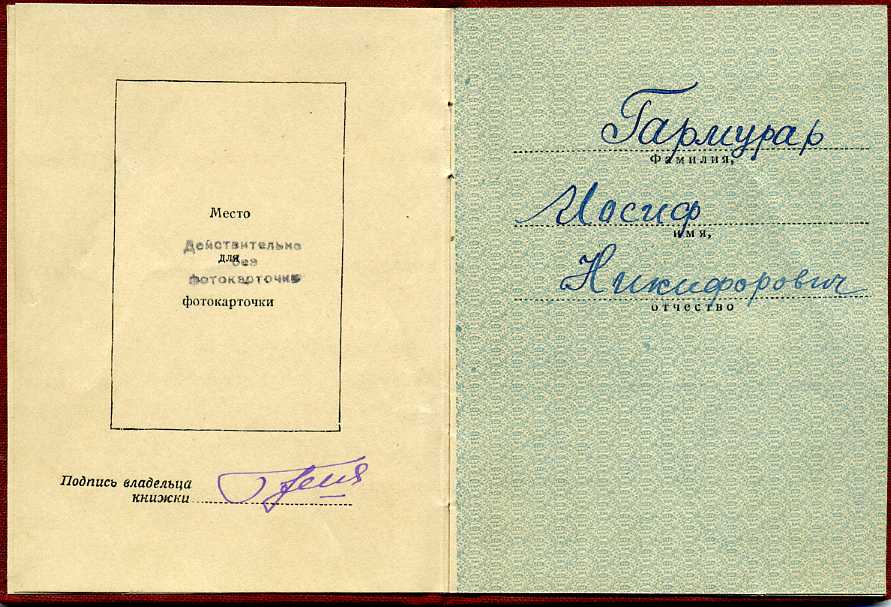 Место
Действительно
для
без
фотокарточки
фотокарточки
Подпись владельца
книжки
Гармурар
Фамилия,
Иосиф
имя,
Никифорович
отчество